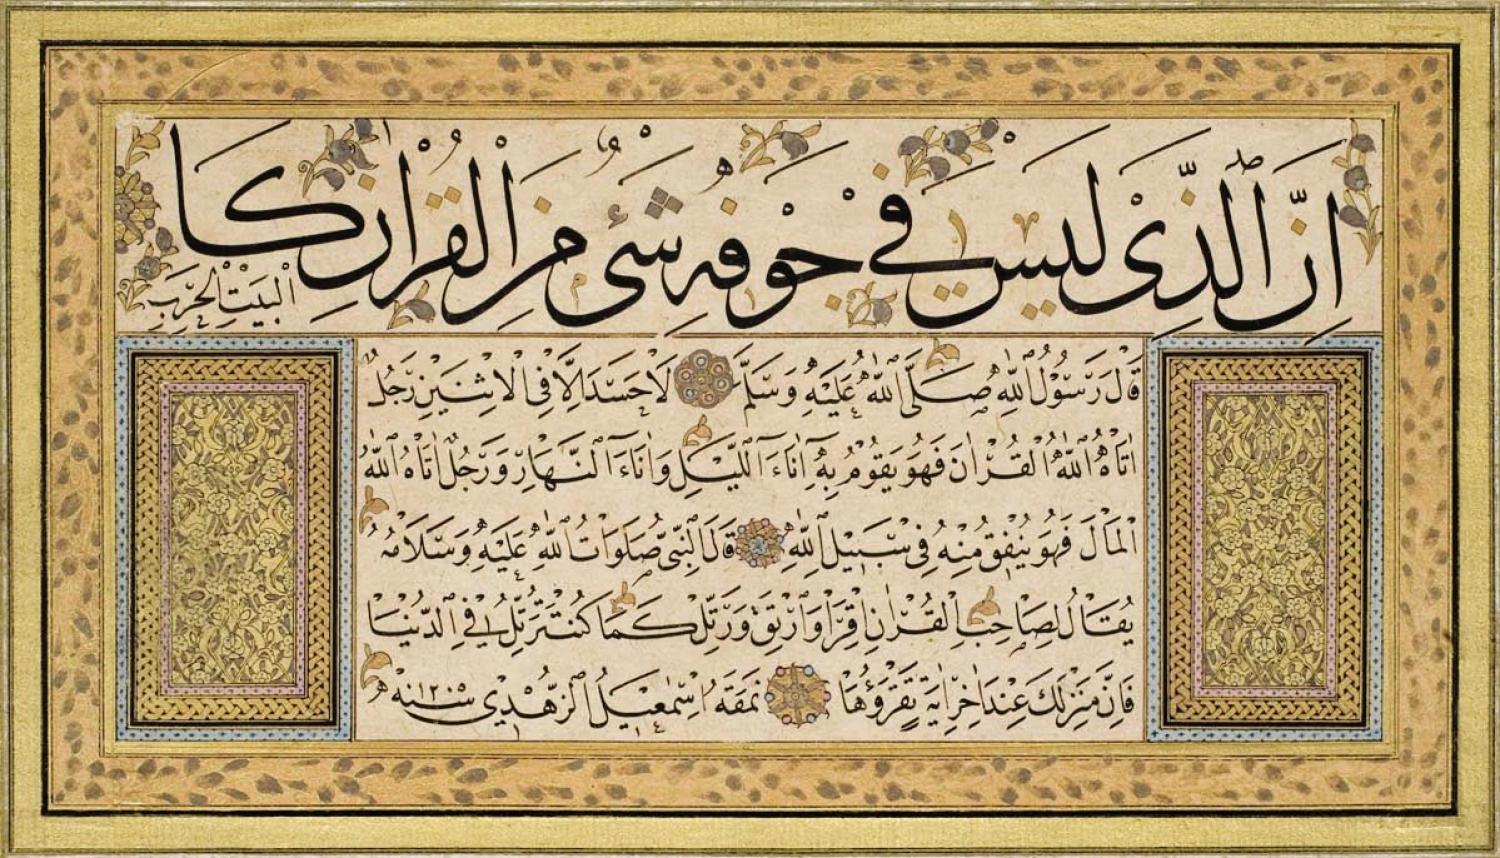 اِنَّ الَّذِيْ لَيْسَ فِيْ جَوْفِهِ شَيْءٌ مِنَ الْقُرْاٰنِ كَا
الْبَيْتِ الْخَرِبِ
قَالَ رَسُوْلُ اللهِ صَلَّى اللهُ عَلَيْهِ وَسَلَّمَ لَا حَسَدَ اِلَّا فِي الْاِثْنَيْنِ رَجُلٌ
اٰتَاهُ اللهُ الْقُرْاٰنَ فَهُوَ يَقُوْمُ بِهِ اٰنَاءَ اللَّيْلِ وَاٰنَاءَ النَّهَارِ وَرَجُلٌ اٰتَاهُ اللهُ
الْمَالَ فَهُوَ يُنْفِقُ مِنْهُ فِي سَبِيْلِ اللهِ قَالَ النَّبِيُّ صَلَوَاتُ اللهِ عَلَيْهِ وَسَلَامُهُ
يُقَالُ لِصَاحِبِ الْقُرْاٰنِ اِقْرَأْ وَارْتَقِ وَرَتِّلْ كَمَا كُنْتَ تُرَتِّلُ فِي الدُّنْيَا
فَاِنَّ مَنْزِلَكَ عِنْدَ اٰخِرِ اٰيَةٍ تَقْرَؤُهَا نَمَقَهُ اِسْمٰعِيْلُ الزُّهْدِي سنه ١٢٠٥